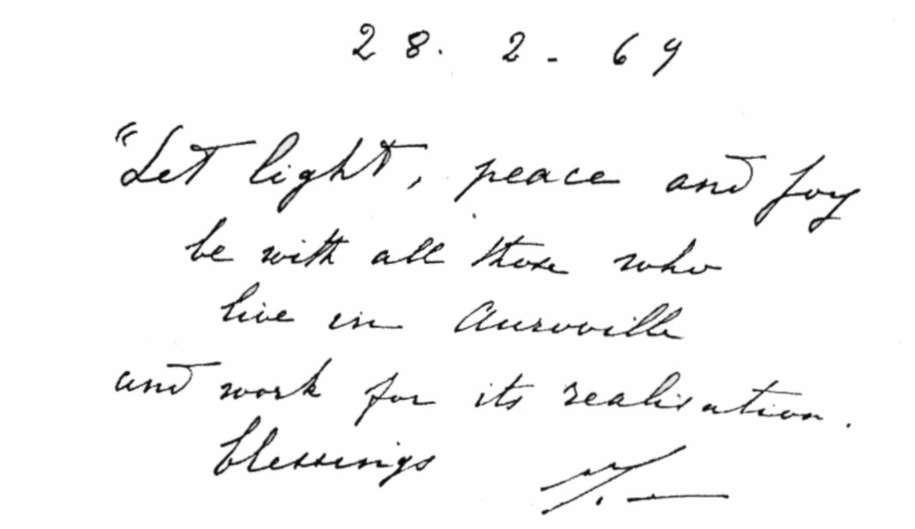 28. 2 - 69
"Let light, peace and joy
be with all those who
live in Auroville
and work for its realisation.
blessings